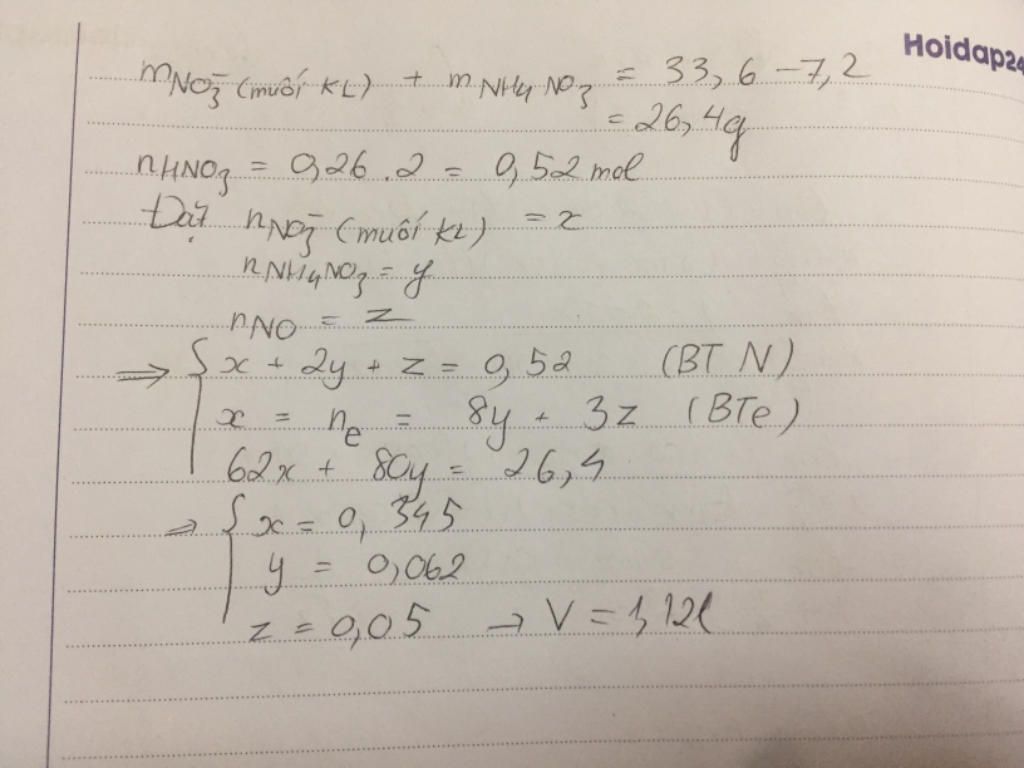 Hoidap24
mNO3⁻ (muối KL) + m NH4NO3 = 33,6 - 7,2
= 26,4g
nHNO3 = 0,26 . 2 = 0,52 mol
Đặt nNO3⁻ (muối KL) = x
nNH4NO3 = y
nNO = z
=> { x + 2y + z = 0,52 (BT N)
x = ne = 8y + 3z (BTe)
62x + 80y = 26,4
=> { x = 0,345
y = 0,062
z = 0,05 → V = 1,12l